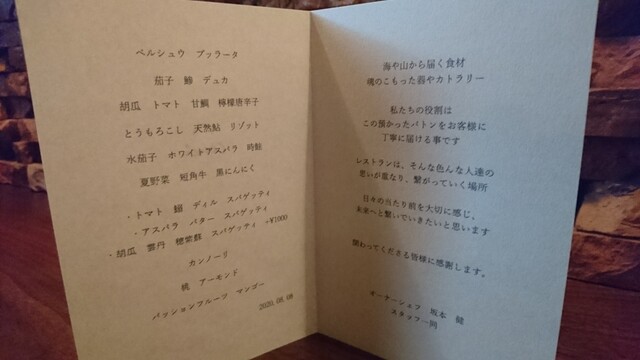 ペルシュウ ブッラータ
茄子 鯵 デュカ
胡瓜 トマト 甘鯛 檸檬唐辛子
とうもろこし 天然鮎 リゾット
水茄子 ホワイトアスパラ 時鮭
夏野菜 短角牛 黒にんにく
・トマト 鰯 ディル スパゲッティ
・アスパラ バター スパゲッティ
・胡瓜 雲丹 穂紫蘇 スパゲッティ +¥1000
カンノーリ
桃 アーモンド
パッションフルーツ マンゴー
2020.08.08
海や山から届く食材
魂のこもった器やカトラリー
私たちの役割は
この預かったバトンをお客様に
丁寧に届ける事です
レストランは、そんな色んな人達の
思いが重なり、繋がっていく場所
日々の当たり前を大切に感じ、
未来へと繋いでいきたいと思います
関わってくださる皆様に感謝します。
オーナーシェフ 坂本 健
スタッフ一同